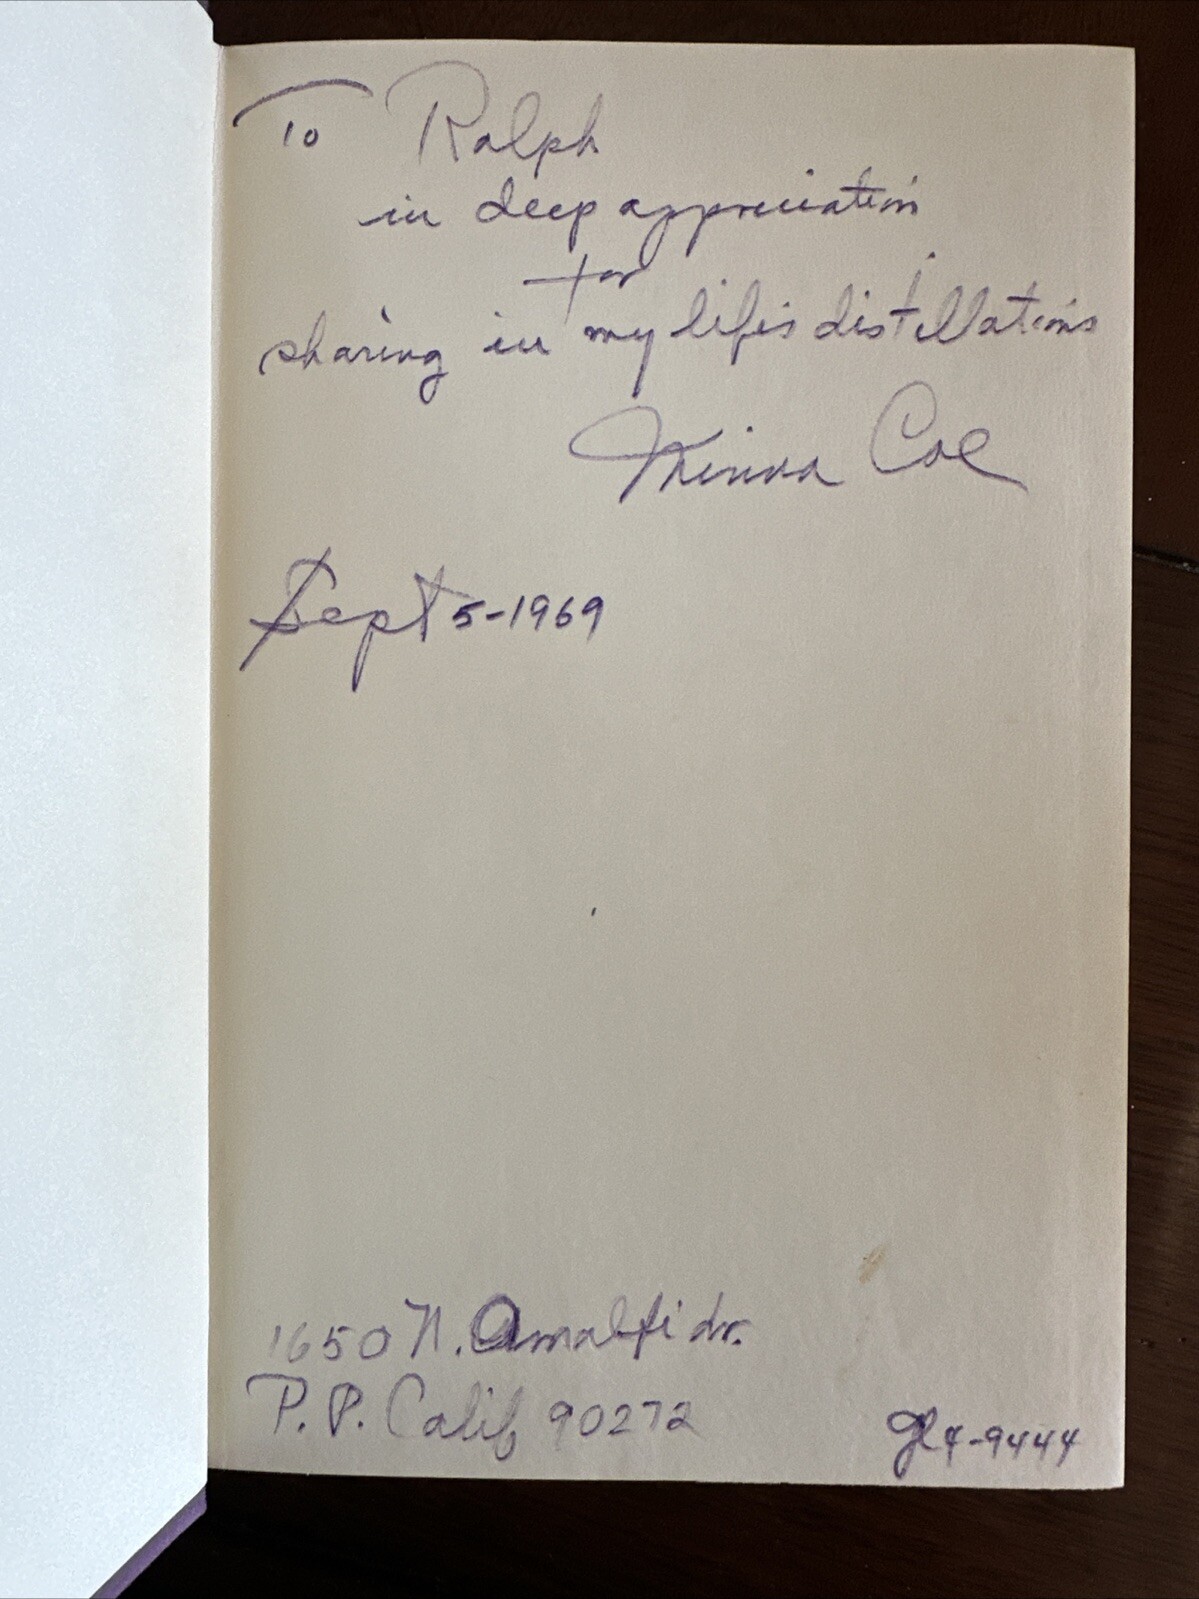 To Ralph
in deep appreciation
for
sharing in my life's distillations
Minna Coe
Sept 5-1969
1650 N. Amalfi dr.
P.P. Calif 90272
GL4-9444